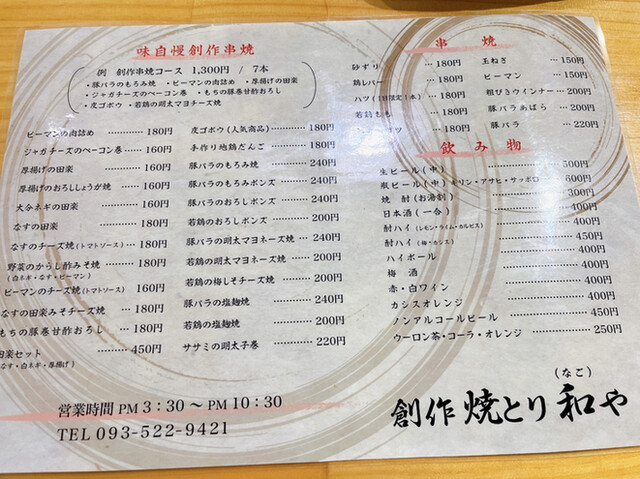 味自慢創作串焼
例 創作串焼コース 1,300円 / 7本
・豚バラのもろみ焼 ・ピーマンの肉詰め ・厚揚げの田楽
・ジャガチーズのベーコン巻 ・もちの豚巻甘酢おろし
・皮ゴボウ ・若鶏の明太マヨチーズ焼
ピーマンの肉詰め 180円
ジャガチーズのベーコン巻 160円
厚揚げの田楽 160円
厚揚げのおろししょうが焼 160円
大分ネギの田楽 160円
なすの田楽 180円
なすのチーズ焼(トマトソース) 180円
野菜のからし酢みそ焼 180円
(白ネギ・なす・ピーマン)
ピーマンのチーズ焼(トマトソース) 160円
なすの田楽みそチーズ焼 180円
もちの豚巻甘酢おろし 180円
田楽セット 450円
(なす・白ネギ・厚揚げ)
皮ゴボウ(人気商品) 180円
手作り地鶏だんご 180円
豚バラのもろみ焼 240円
豚バラのもろみポンズ 240円
豚バラのおろしポンズ 240円
若鶏のおろしポンズ 200円
豚バラの明太マヨネーズ焼 240円
若鶏の明太マヨネーズ焼 200円
若鶏の梅しそチーズ焼 200円
豚バラの塩麹焼 240円
若鶏の塩麹焼 200円
ササミの明太子巻 220円
串焼
砂ずり 180円
鶏レバー 180円
ハツ 180円
若鶏もも 180円
180円
玉ねぎ 150円
ピーマン 150円
粗びきウインナー 200円
豚バラあばら 200円
豚バラ 220円
飲み物
生ビール(中) 500円
瓶ビール(中)キリン・アサヒ・サッポロ 500円
焼酎(お湯割) 300円
日本酒(一合) 400円
酎ハイ(レモン・ライム・カルピス) 350円
酎ハイ(梅・カシス) 400円
ハイボール 400円
梅酒 400円
赤・白ワイン 400円
カシスオレンジ 400円
ノンアルコールビール 450円
ウーロン茶・コーラ・オレンジ 250円
営業時間 PM 3:30〜PM 10:30
TEL 093-522-9421
(なこ)
創作 焼とり 和や